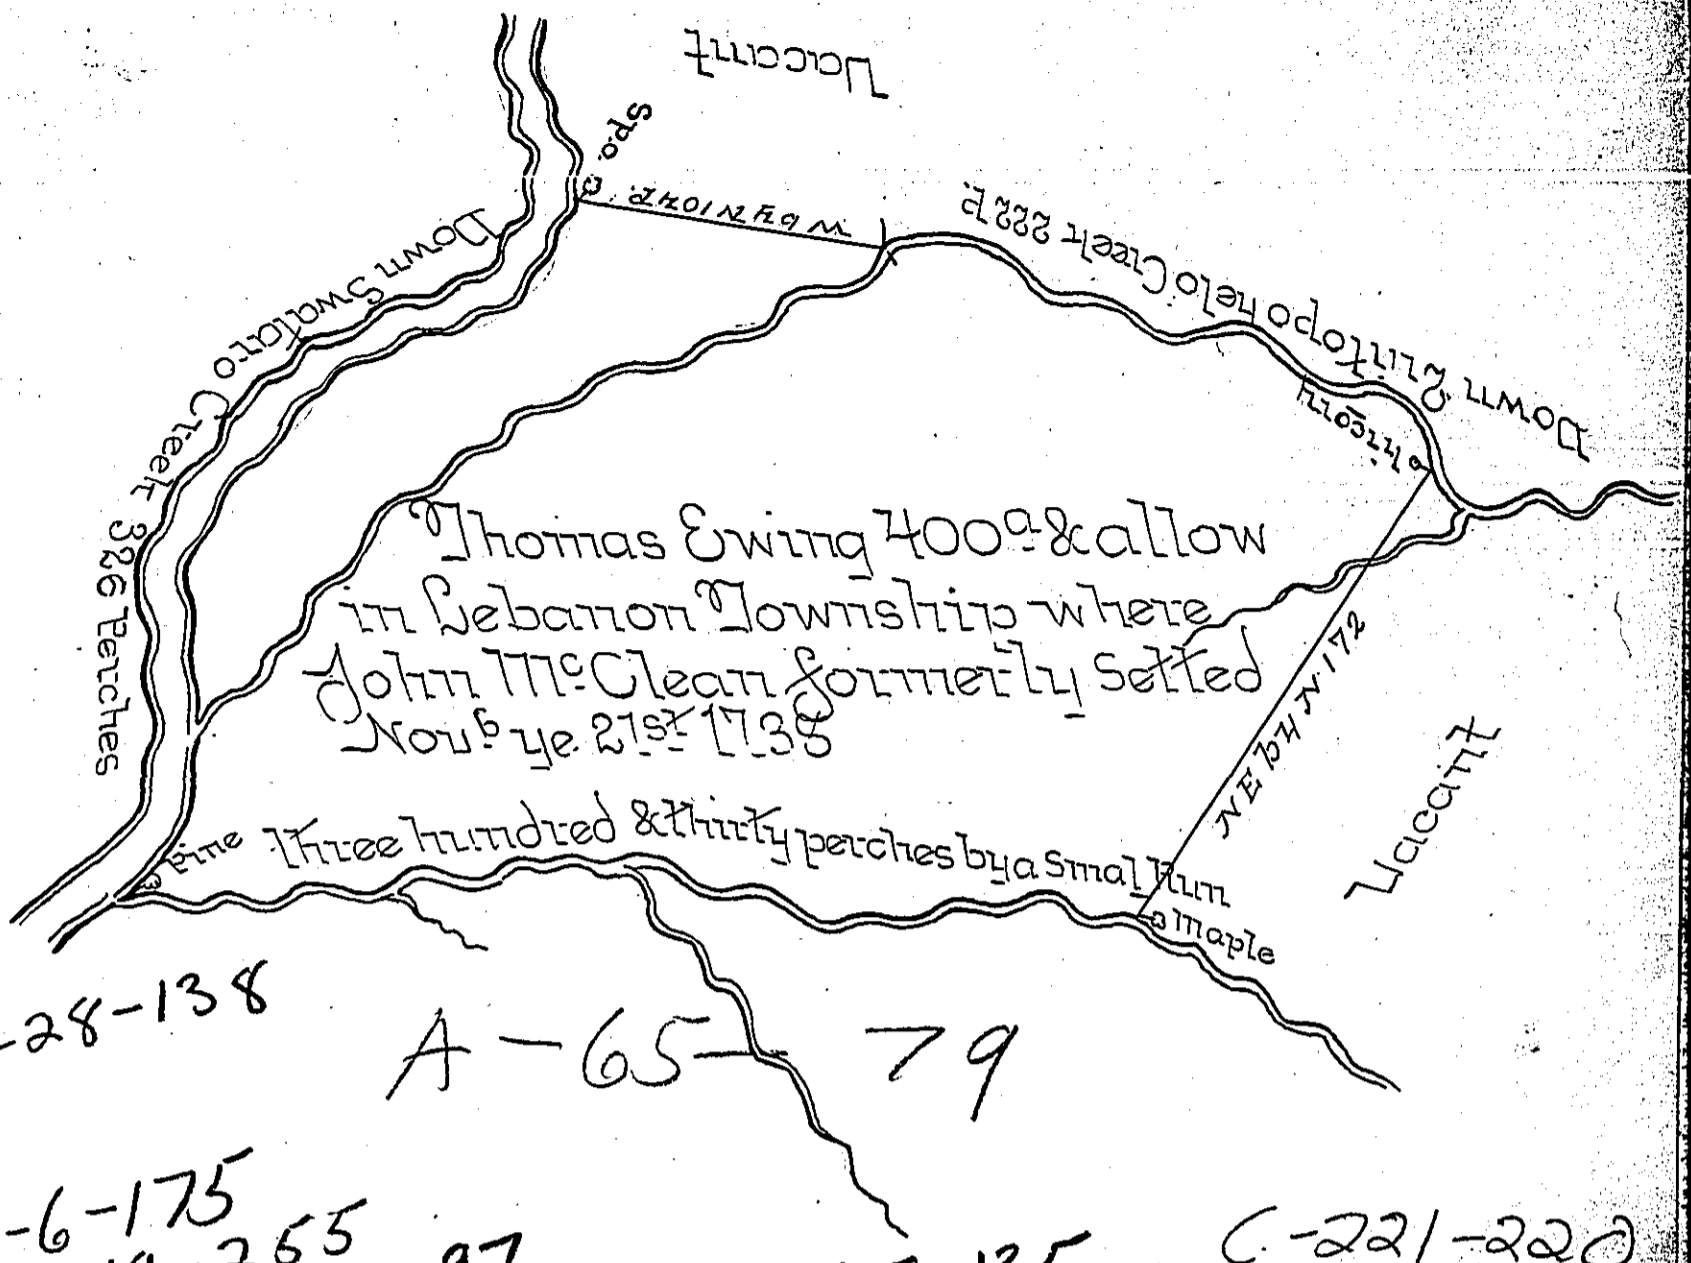 Vacant
Sp.o.
W by N 104 P.
Down Quitopohelo Creek 222 P.
hicory
Down Swataro Creek 326 Perches
Thomas Ewing 400a & allow
in Lebanon Township where
John McClean formerly Setted
Novb ye 21st 1738
NE b4 N 172
Vacant
pine
three hundred & thirty perches by a Smal Run
maple
-28-138
A-65-79
-6-175
255
97
C-221-220